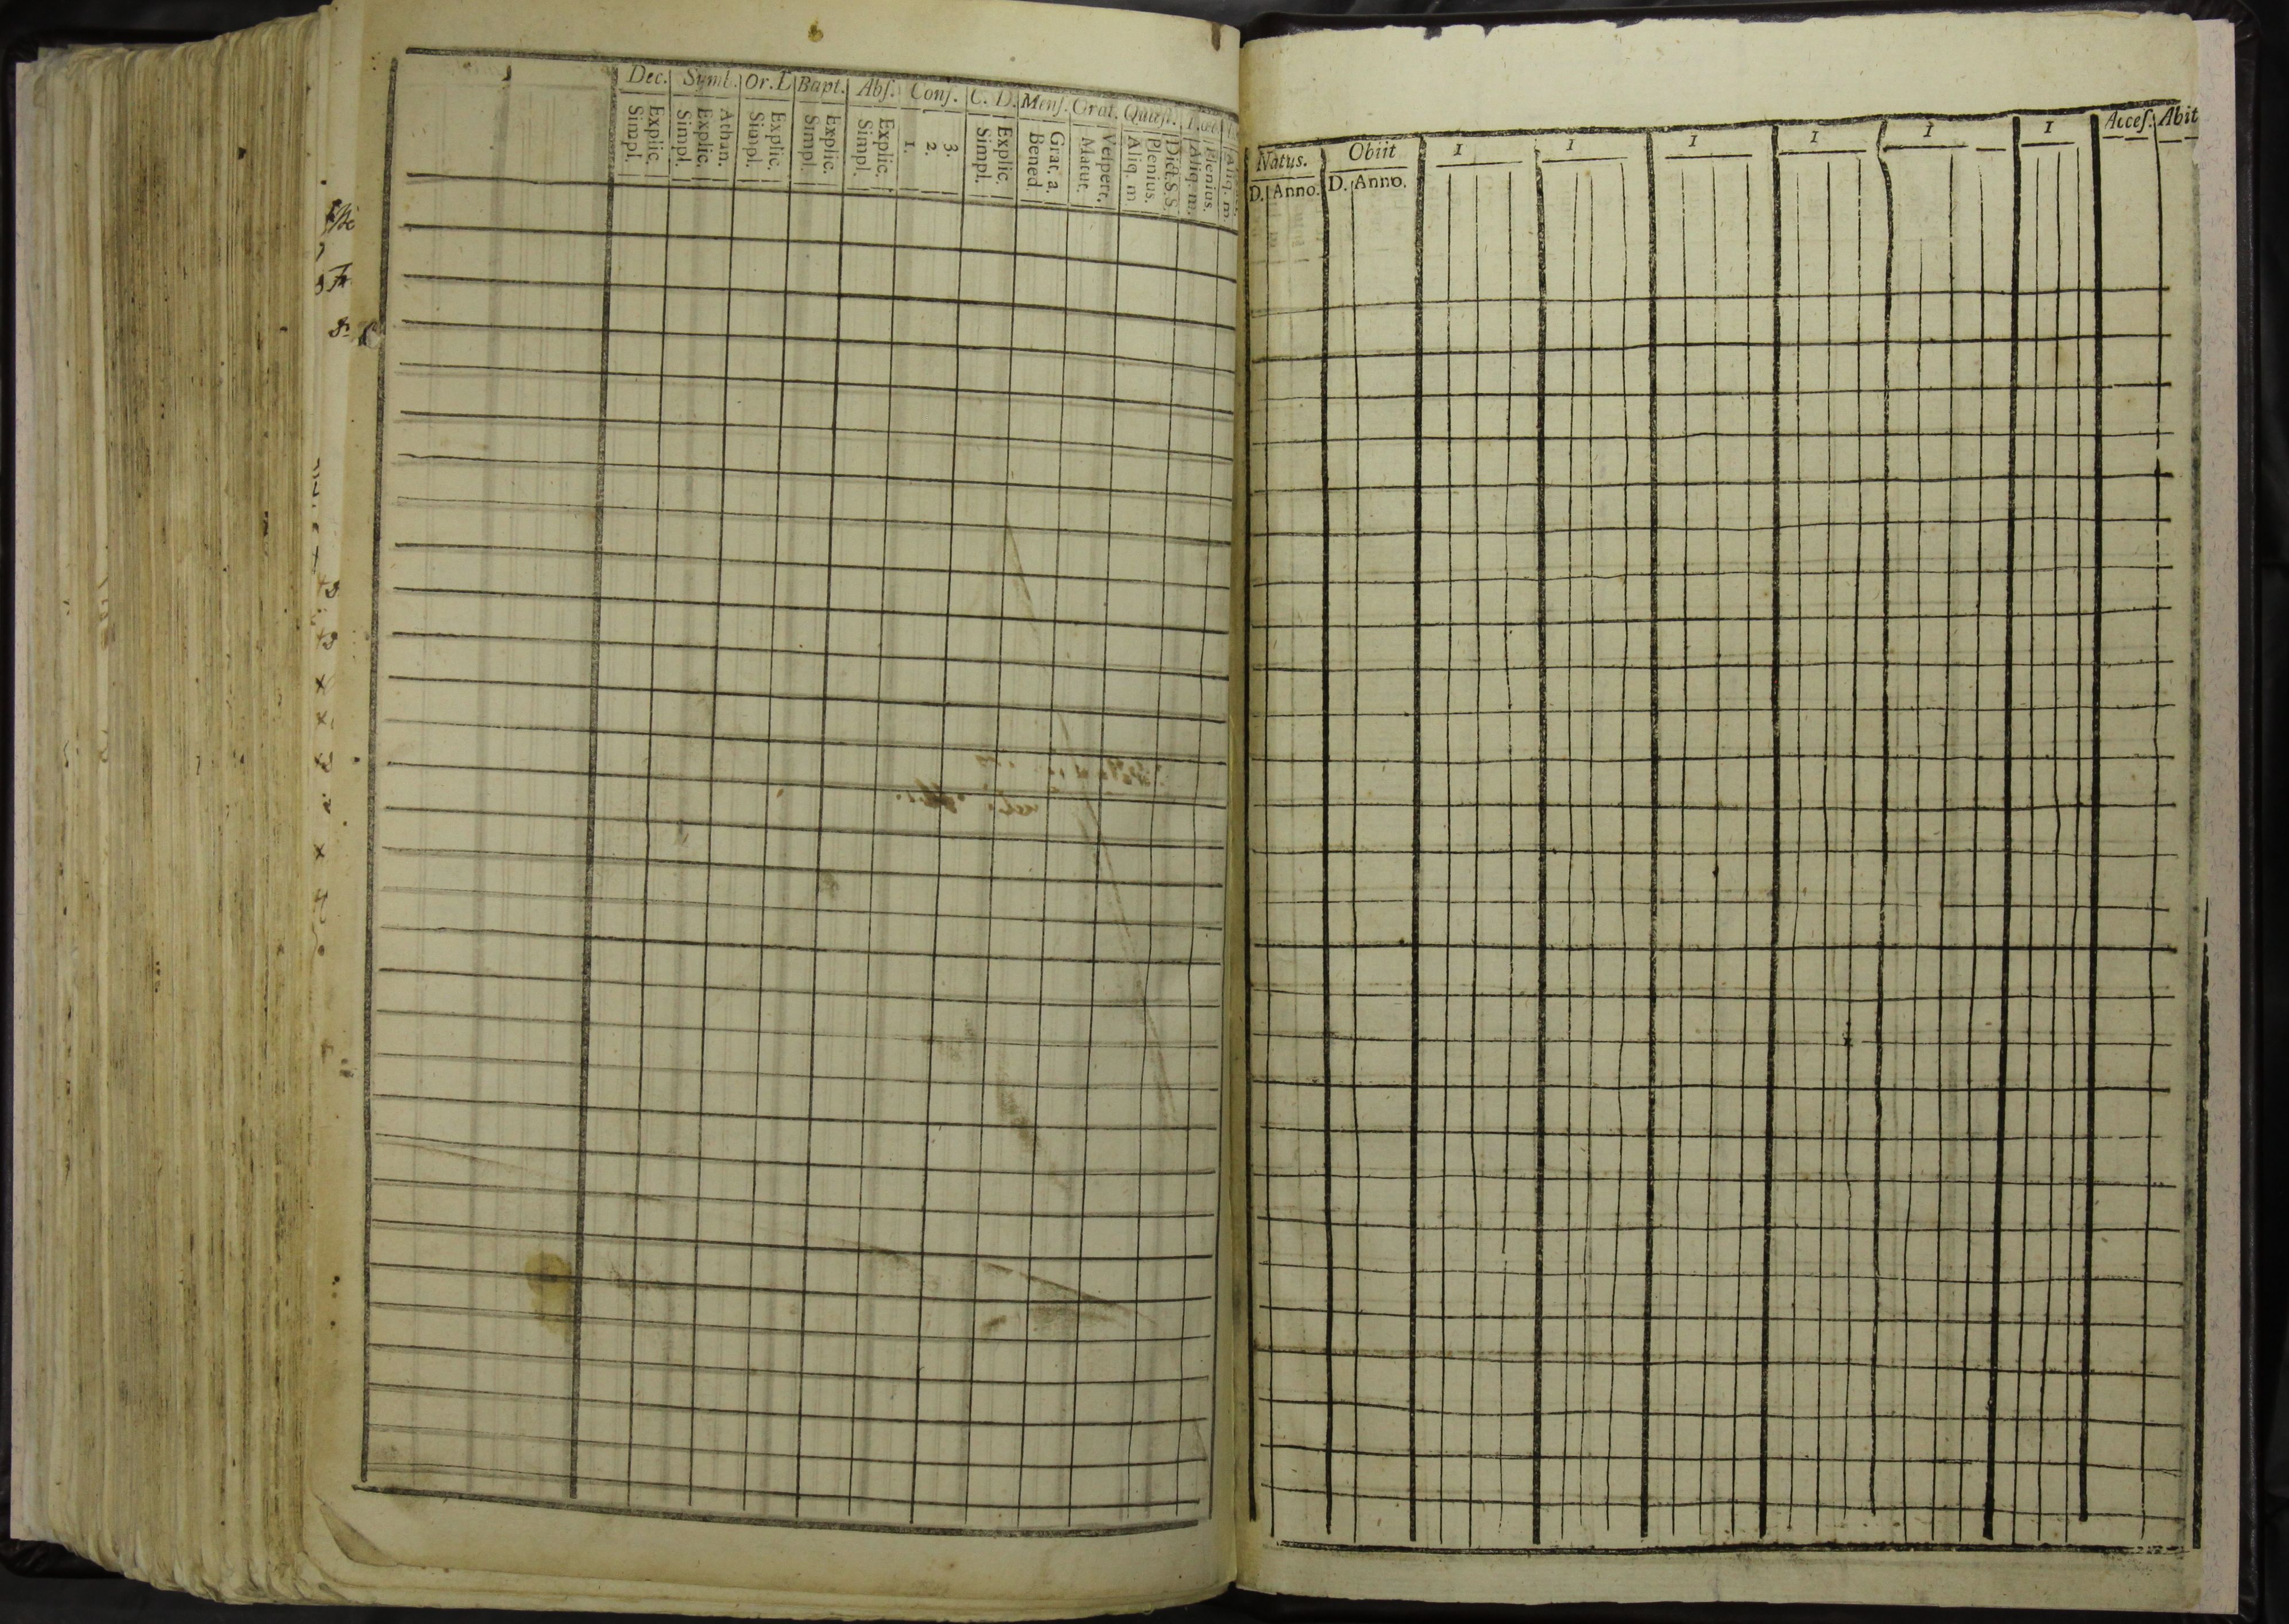 Dec. Symb. Or. D Bapt. Abſ. Conf. C. D. Menſ. Orat. Quæſt.
Simpl. Explic. Simpl. Explic. Athan. Simpl. Explic. Simpl. Explic. Simpl. Explic. 1. 2. 3. Simpl. Explic. Bened. Grat. a. Matut. Veſpert. Aliq. m Plenius. Dict. S. S. Aliq. m. Plenius. Aliq. m.
Natus. Obiit 1 1 1 1 1 1 Acceſ. Abit
D. Anno. D. Anno.